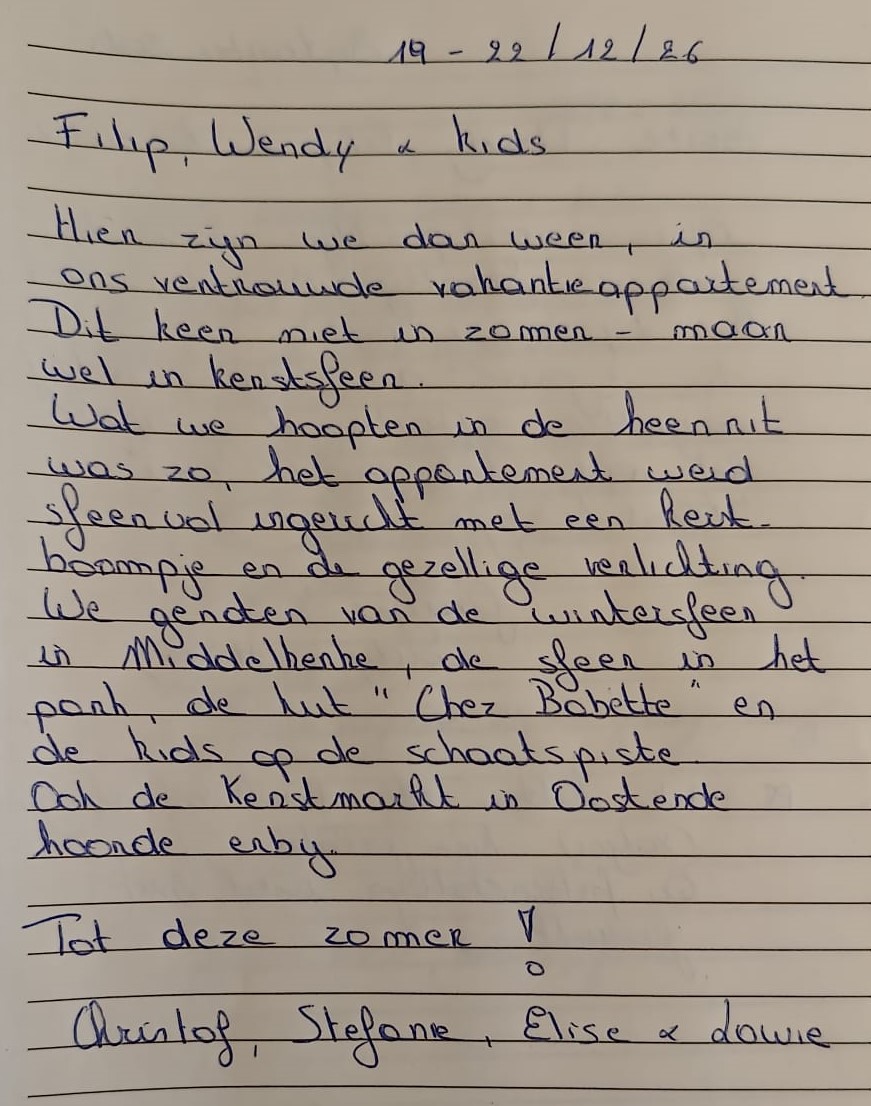 19 - 22 / 12 / 26
Filip, Wendy & kids
Hier zijn we dan weer, in
ons vertrouwde vakantieappartement.
Dit keer niet in zomer - maar
wel in kerstsfeer.
Wat we hoopten in de heenrit
was zo, het appartement werd
sfeervol ingericht met een kerst-
boompje en de gezellige verlichting.
We genoten van de wintersfeer
in Middelkerke, de sfeer in het
park, de hut "Chez Babette" en
de kids op de schaatspiste
Ook de Kerstmarkt in Oostende
hoorde erbij.
Tot deze zomer !
Christof, Stefanie, Elise & Lowie